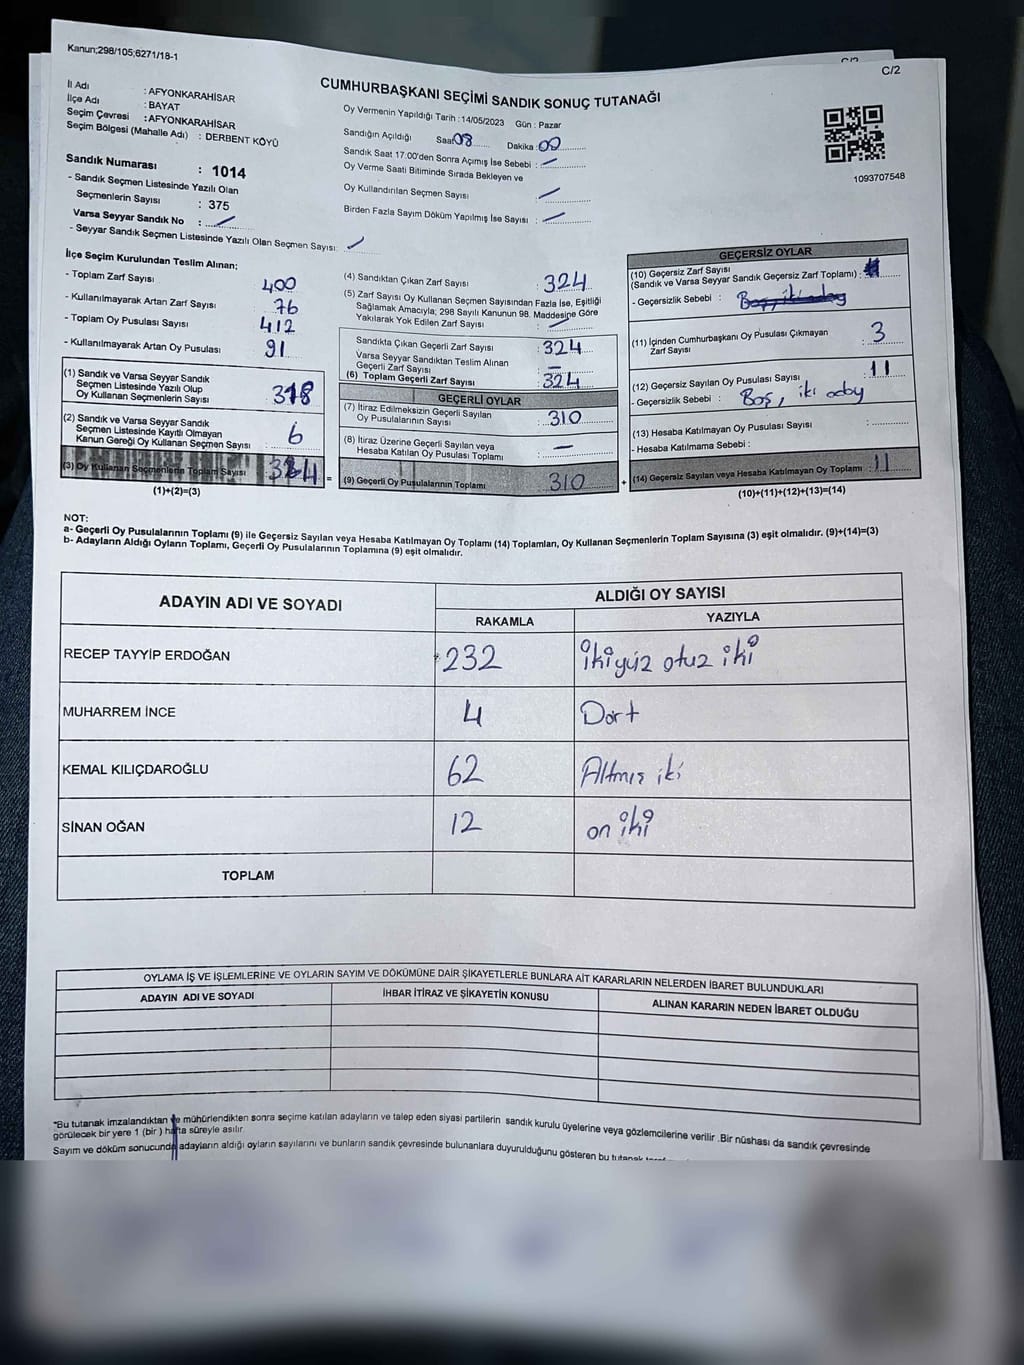 Kanun;298/105;6271/18-1
C/2
CUMHURBAŞKANI SEÇİMİ SANDIK SONUÇ TUTANAĞI
İl Adı : AFYONKARAHİSAR
İlçe Adı : BAYAT
Seçim Çevresi : AFYONKARAHİSAR
Seçim Bölgesi (Mahalle Adı) : DERBENT KÖYÜ
Oy Vermenin Yapıldığı Tarih : 14/05/2023 Gün : Pazar
Sandığın Açıldığı Saat 08 Dakika : 00
Sandık Saat 17:00'den Sonra Açılmış İse Sebebi :
Oy Verme Saati Bitiminde Sırada Bekleyen ve
Oy Kullandırılan Seçmen Sayısı
Birden Fazla Sayım Döküm Yapılmış İse Sayısı :
1093707548
Sandık Numarası : 1014
- Sandık Seçmen Listesinde Yazılı Olan
Seçmenlerin Sayısı : 375
Varsa Seyyar Sandık No :
- Seyyar Sandık Seçmen Listesinde Yazılı Olan Seçmen Sayısı:
İlçe Seçim Kurulundan Teslim Alınan;
- Toplam Zarf Sayısı 400
- Kullanılmayarak Artan Zarf Sayısı 76
- Toplam Oy Pusulası Sayısı 412
- Kullanılmayarak Artan Oy Pusulası 91
(1) Sandık ve Varsa Seyyar Sandık
Seçmen Listesinde Yazılı Olup
Oy Kullanan Seçmenlerin Sayısı 318
(2) Sandık ve Varsa Seyyar Sandık
Seçmen Listesinde Kayıtlı Olmayan
Kanun Gereği Oy Kullanan Seçmen Sayısı 6
(3) Oy Kullanan Seçmenlerin Toplam Sayısı 324
(1)+(2)=(3)
(4) Sandıktan Çıkan Zarf Sayısı : 324
(5) Zarf Sayısı Oy Kullanan Seçmen Sayısından Fazla İse, Eşitliği
Sağlamak Amacıyla; 298 Sayılı Kanunun 98. Maddesine Göre
Yakılarak Yok Edilen Zarf Sayısı :
Sandıkta Çıkan Geçerli Zarf Sayısı : 324
Varsa Seyyar Sandıktan Teslim Alınan
Geçerli Zarf Sayısı : —
(6) Toplam Geçerli Zarf Sayısı : 324
GEÇERLİ OYLAR
(7) İtiraz Edilmeksizin Geçerli Sayılan
Oy Pusulalarının Sayısı : 310
(8) İtiraz Üzerine Geçerli Sayılan veya
Hesaba Katılan Oy Pusulası Toplamı : —
= (9) Geçerli Oy Pusulalarının Toplamı 310 +
GEÇERSİZ OYLAR
(10) Geçersiz Zarf Sayısı
(Sandık ve Varsa Seyyar Sandık Geçersiz Zarf Toplamı) :
- Geçersizlik Sebebi : Boş, iki aday
(11) İçinden Cumhurbaşkanı Oy Pusulası Çıkmayan
Zarf Sayısı : 3
(12) Geçersiz Sayılan Oy Pusulası Sayısı : 11
- Geçersizlik Sebebi : Boş, iki aday
(13) Hesaba Katılmayan Oy Pusulası Sayısı :
- Hesaba Katılmama Sebebi :
(14) Geçersiz Sayılan veya Hesaba Katılmayan Oy Toplamı : 11
(10)+(11)+(12)+(13)=(14)
NOT:
a- Geçerli Oy Pusulalarının Toplamı (9) ile Geçersiz Sayılan veya Hesaba Katılmayan Oy Toplamı (14) Toplamları, Oy Kullanan Seçmenlerin Toplam Sayısına (3) eşit olmalıdır. (9)+(14)=(3)
b- Adayların Aldığı Oyların Toplamı, Geçerli Oy Pusulalarının Toplamına (9) eşit olmalıdır.
ADAYIN ADI VE SOYADI ALDIĞI OY SAYISI
RAKAMLA YAZIYLA
RECEP TAYYİP ERDOĞAN 232 ikiyüz otuz iki
MUHARREM İNCE 4 Dört
KEMAL KILIÇDAROĞLU 62 Altmış iki
SİNAN OĞAN 12 on iki
TOPLAM
OYLAMA İŞ VE İŞLEMLERİNE VE OYLARIN SAYIM VE DÖKÜMÜNE DAİR ŞİKAYETLERLE BUNLARA AİT KARARLARIN NELERDEN İBARET BULUNDUKLARI
ADAYIN ADI VE SOYADI İHBAR İTİRAZ VE ŞİKAYETİN KONUSU ALINAN KARARIN NEDEN İBARET OLDUĞU
*Bu tutanak imzalandıktan ve mühürlendikten sonra seçime katılan adayların ve talep eden siyasi partilerin sandık kurulu üyelerine veya gözlemcilerine verilir .Bir nüshası da sandık çevresinde
görülecek bir yere 1 (bir ) hafta süreyle asılır.
Sayım ve döküm sonucunda adayların aldığı oyların sayılarını ve bunların sandık çevresinde bulunanlara duyurulduğunu gösteren bu tutanak